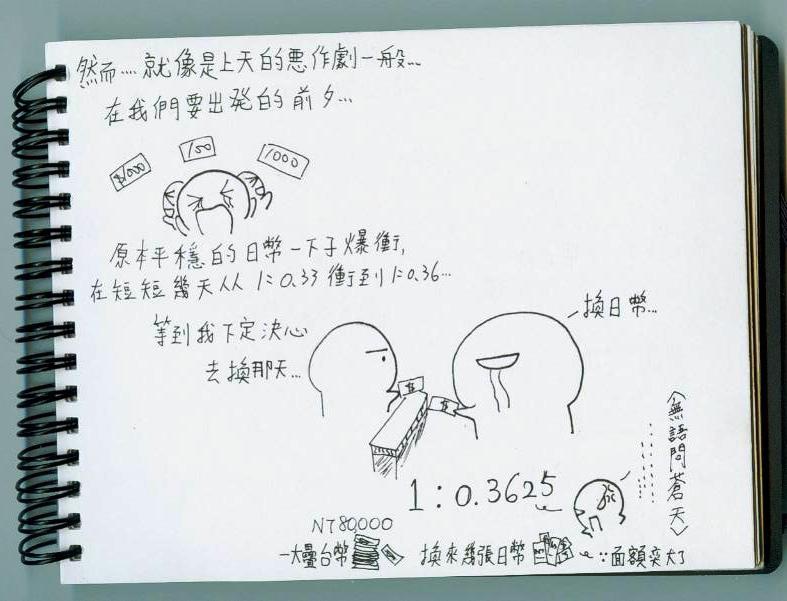 然而....就像是上天的惡作劇一般...
在我們要出發的前夕...
$1000
100
1000
原本平穩的日幣一下子爆衝,
在短短幾天從 1:0.33 衝到 1:0.36...
等到我下定決心
去換那天...
換日幣...
1:0.3625
<無語問蒼天>
NT80,000
一大疊台幣
換來幾張日幣
∵面額突大了